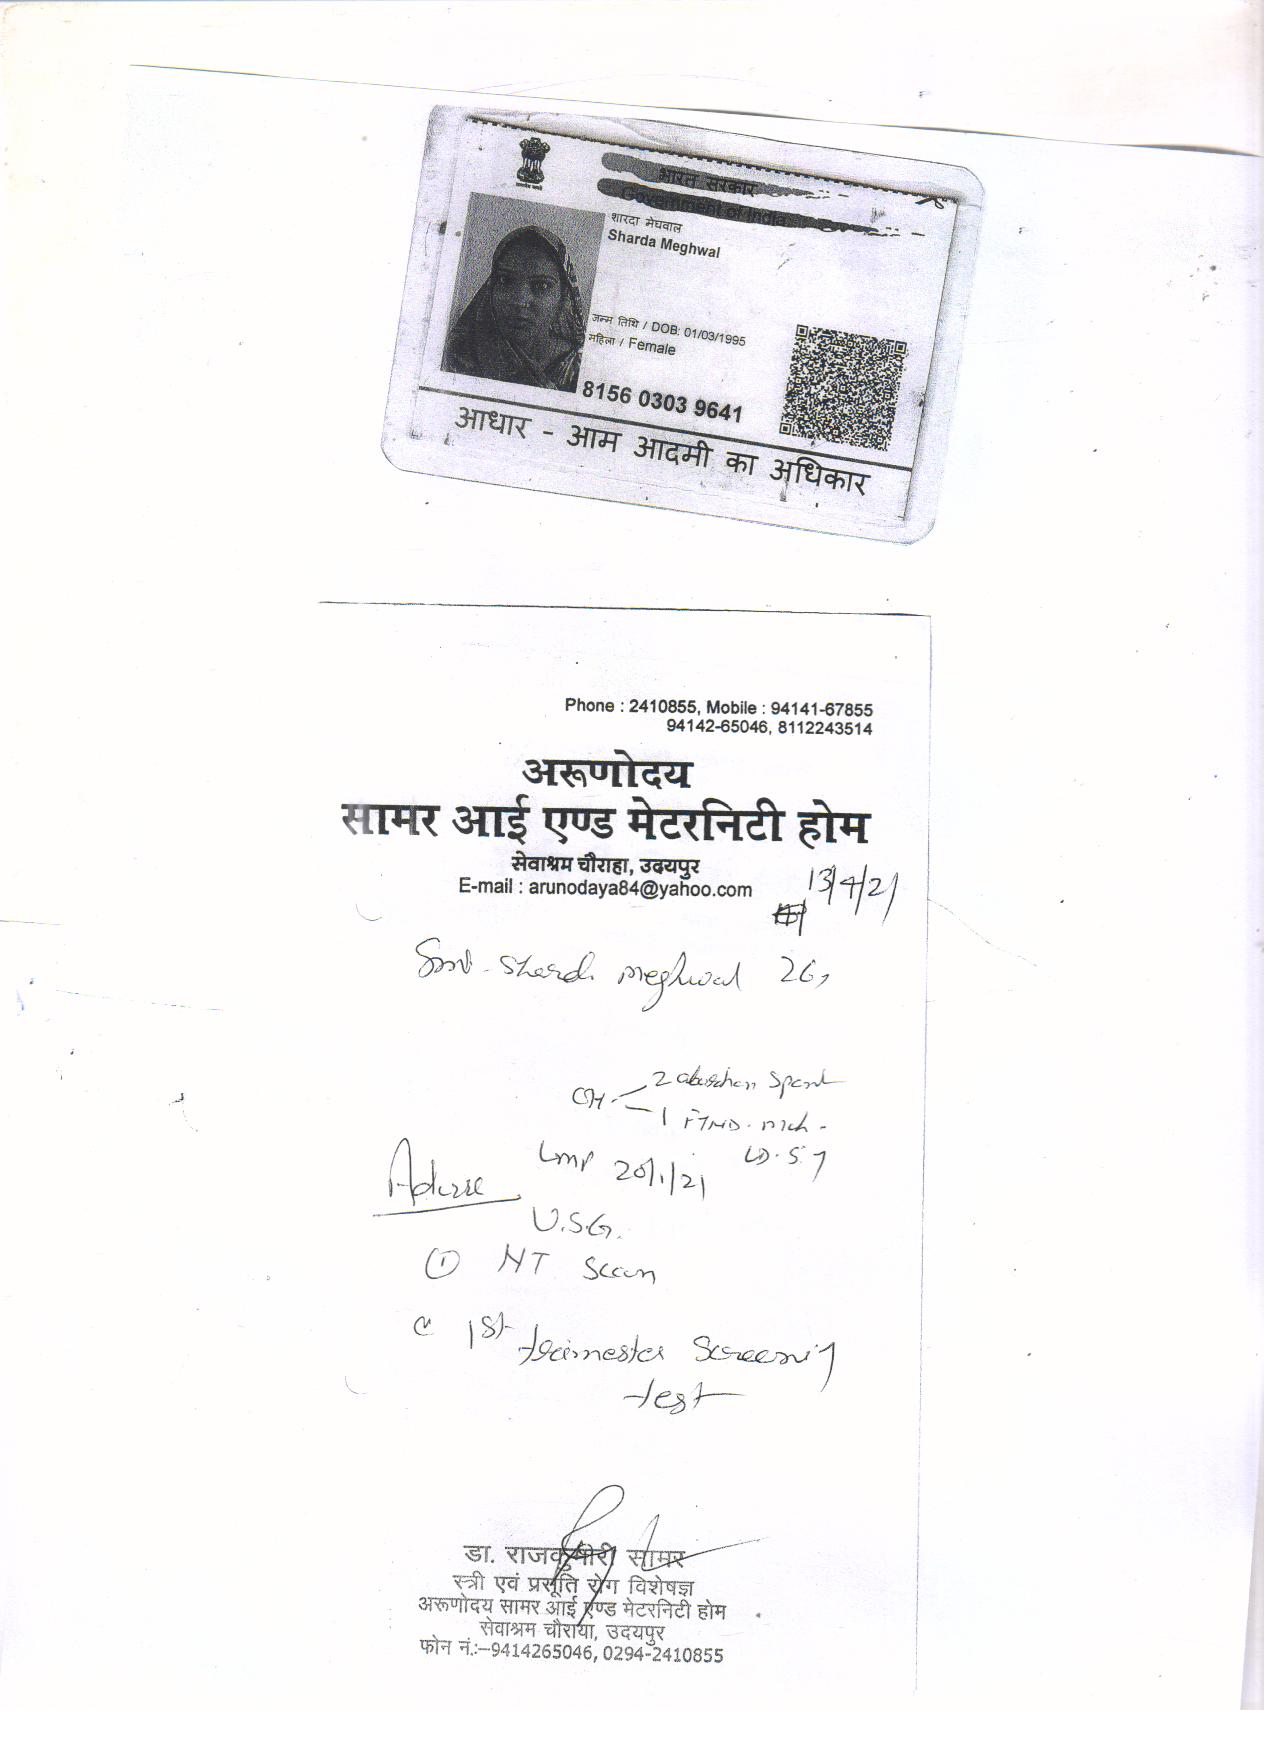 भारत सरकार
Government of India
शारदा मेघवाल
Sharda Meghwal
जन्म तिथि / DOB: 01/03/1995
महिला / Female
8156 0303 9641
आधार - आम आदमी का अधिकार
Phone : 2410855, Mobile : 94141-67855
94142-65046, 8112243514
अरूणोदय
सामर आई एण्ड मेटरनिटी होम
सेवाश्रम चौराहा, उदयपुर
E-mail : arunodaya84@yahoo.com
13/4/21
Smt. Sharda Meghwal 26
OH 2 abortion spont
1 FTND
LMP 20/1/21
Advise
U.S.G.
① NT Scan
1st trimester screening
test
डा. राजकुमारी सामर
स्त्री एवं प्रसूति रोग विशेषज्ञ
अरूणोदय सामर आई एण्ड मेटरनिटी होम
सेवाश्रम चौराया, उदयपुर
फोन नं.:–9414265046, 0294-2410855